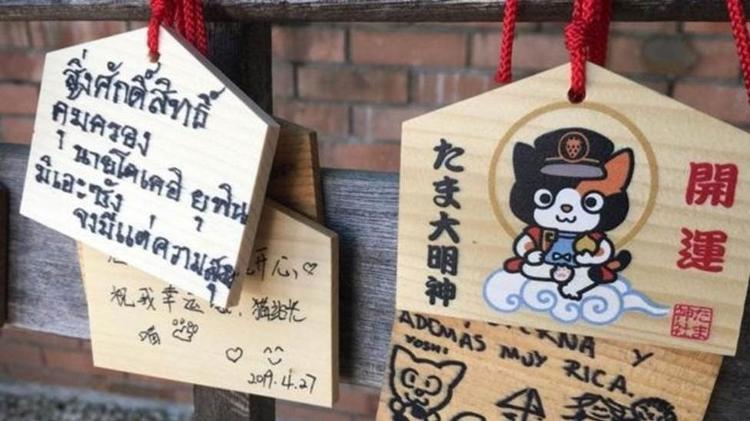 สิ่งศักดิ์สิทธิ์
คุมครอง
นายโคเคอิ ยุฟิน
มิเอะซัง
จงมีแต่ความสุข
开心,♡
祝我幸运
喵
2019.4.27
たま大明神
開運
たま
神社
Y
ADEMAS MUY RICA.
YOSHI